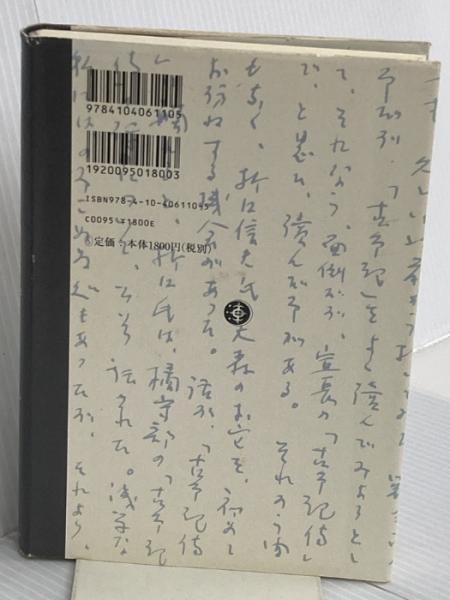 9784104061105
1920095018003
ISBN978-4-10-406110-5
C0095 ¥1800E
定価：本体1800円(税別)
「古事記」をよく読んでみようとし
て、それなら、面倒だが、宣長の「古事記伝
で、と思い、読んだ事がある。それから間
もなく、折口信夫氏の大森のお宅を、初めて
お訪ねする機会があった。話が、「古事記伝
折口氏は、橘守部の「古事記
話された。浅学な
もあったが、それより、